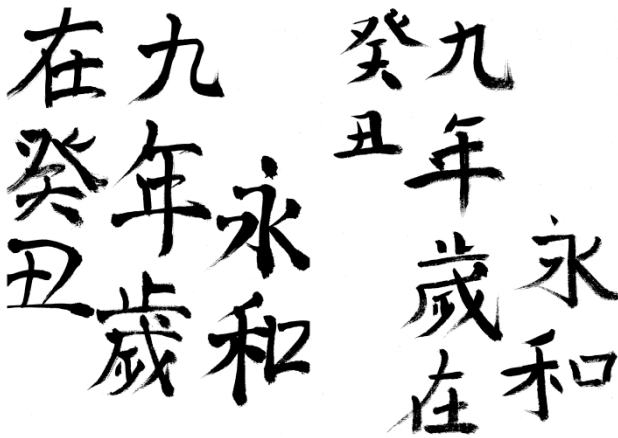 永和
九年歲
在癸丑
永和
九年歲在
癸丑